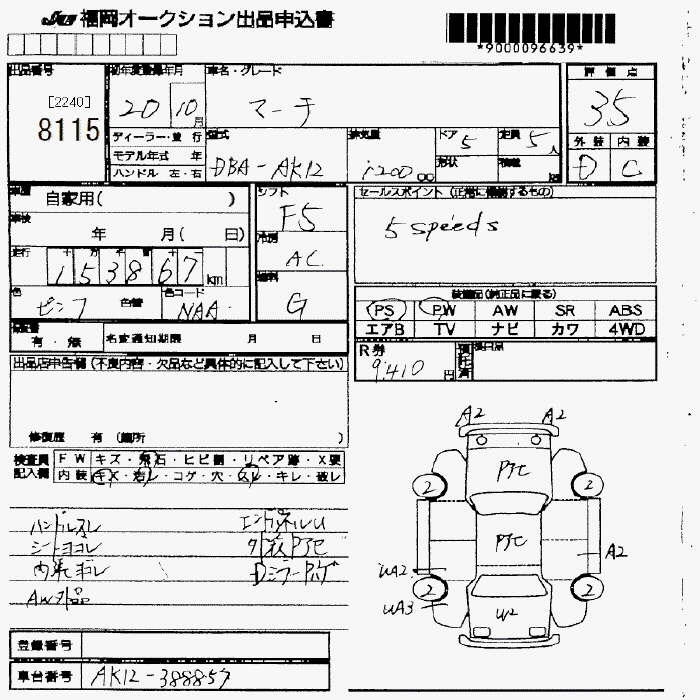 福岡オークション出品申込書
*9000096639*
出品番号 初年度登録年月 車名・グレード 評価点
[2240]
8115
20 10月 マーチ 35
ディーラー・並行 型式 排気量 ドア 5 定員 5人 外装 内装
モデル年式 年 形状 積載
ハンドル 左・右 DBA-AK12 1200cc kg D C
車歴 自家用( ) シフト セールスポイント (正常に稼働するもの)
F5
車検 年 月( 日) 冷房 5 speeds
走行 十 万 千 百 十 AC
153867km 燃料
色 ピンク 色替 色コード NAA G 装備品(純正品に限る)
PS PW AW SR ABS
修復歴 有・無 名変通知期限 月 日 エアB TV ナビ カワ 4WD
R券 9,410円 預託済
出品店申告欄(不良内容・欠品など具体的に記入して下さい)
修復歴 有(箇所 )
検査員 FW キズ・飛石・ヒビ割・リペア跡・X要
記入欄 内装 キズ・汚レ・コゲ・穴・スレ・キレ・破レ
A2 A2
P7C
2 2
ハンドルスレ
シートヨコレ
P7C
A2
UA2
UA3
2 2
AW外品
W2
登録番号
車台番号 AK12-388857